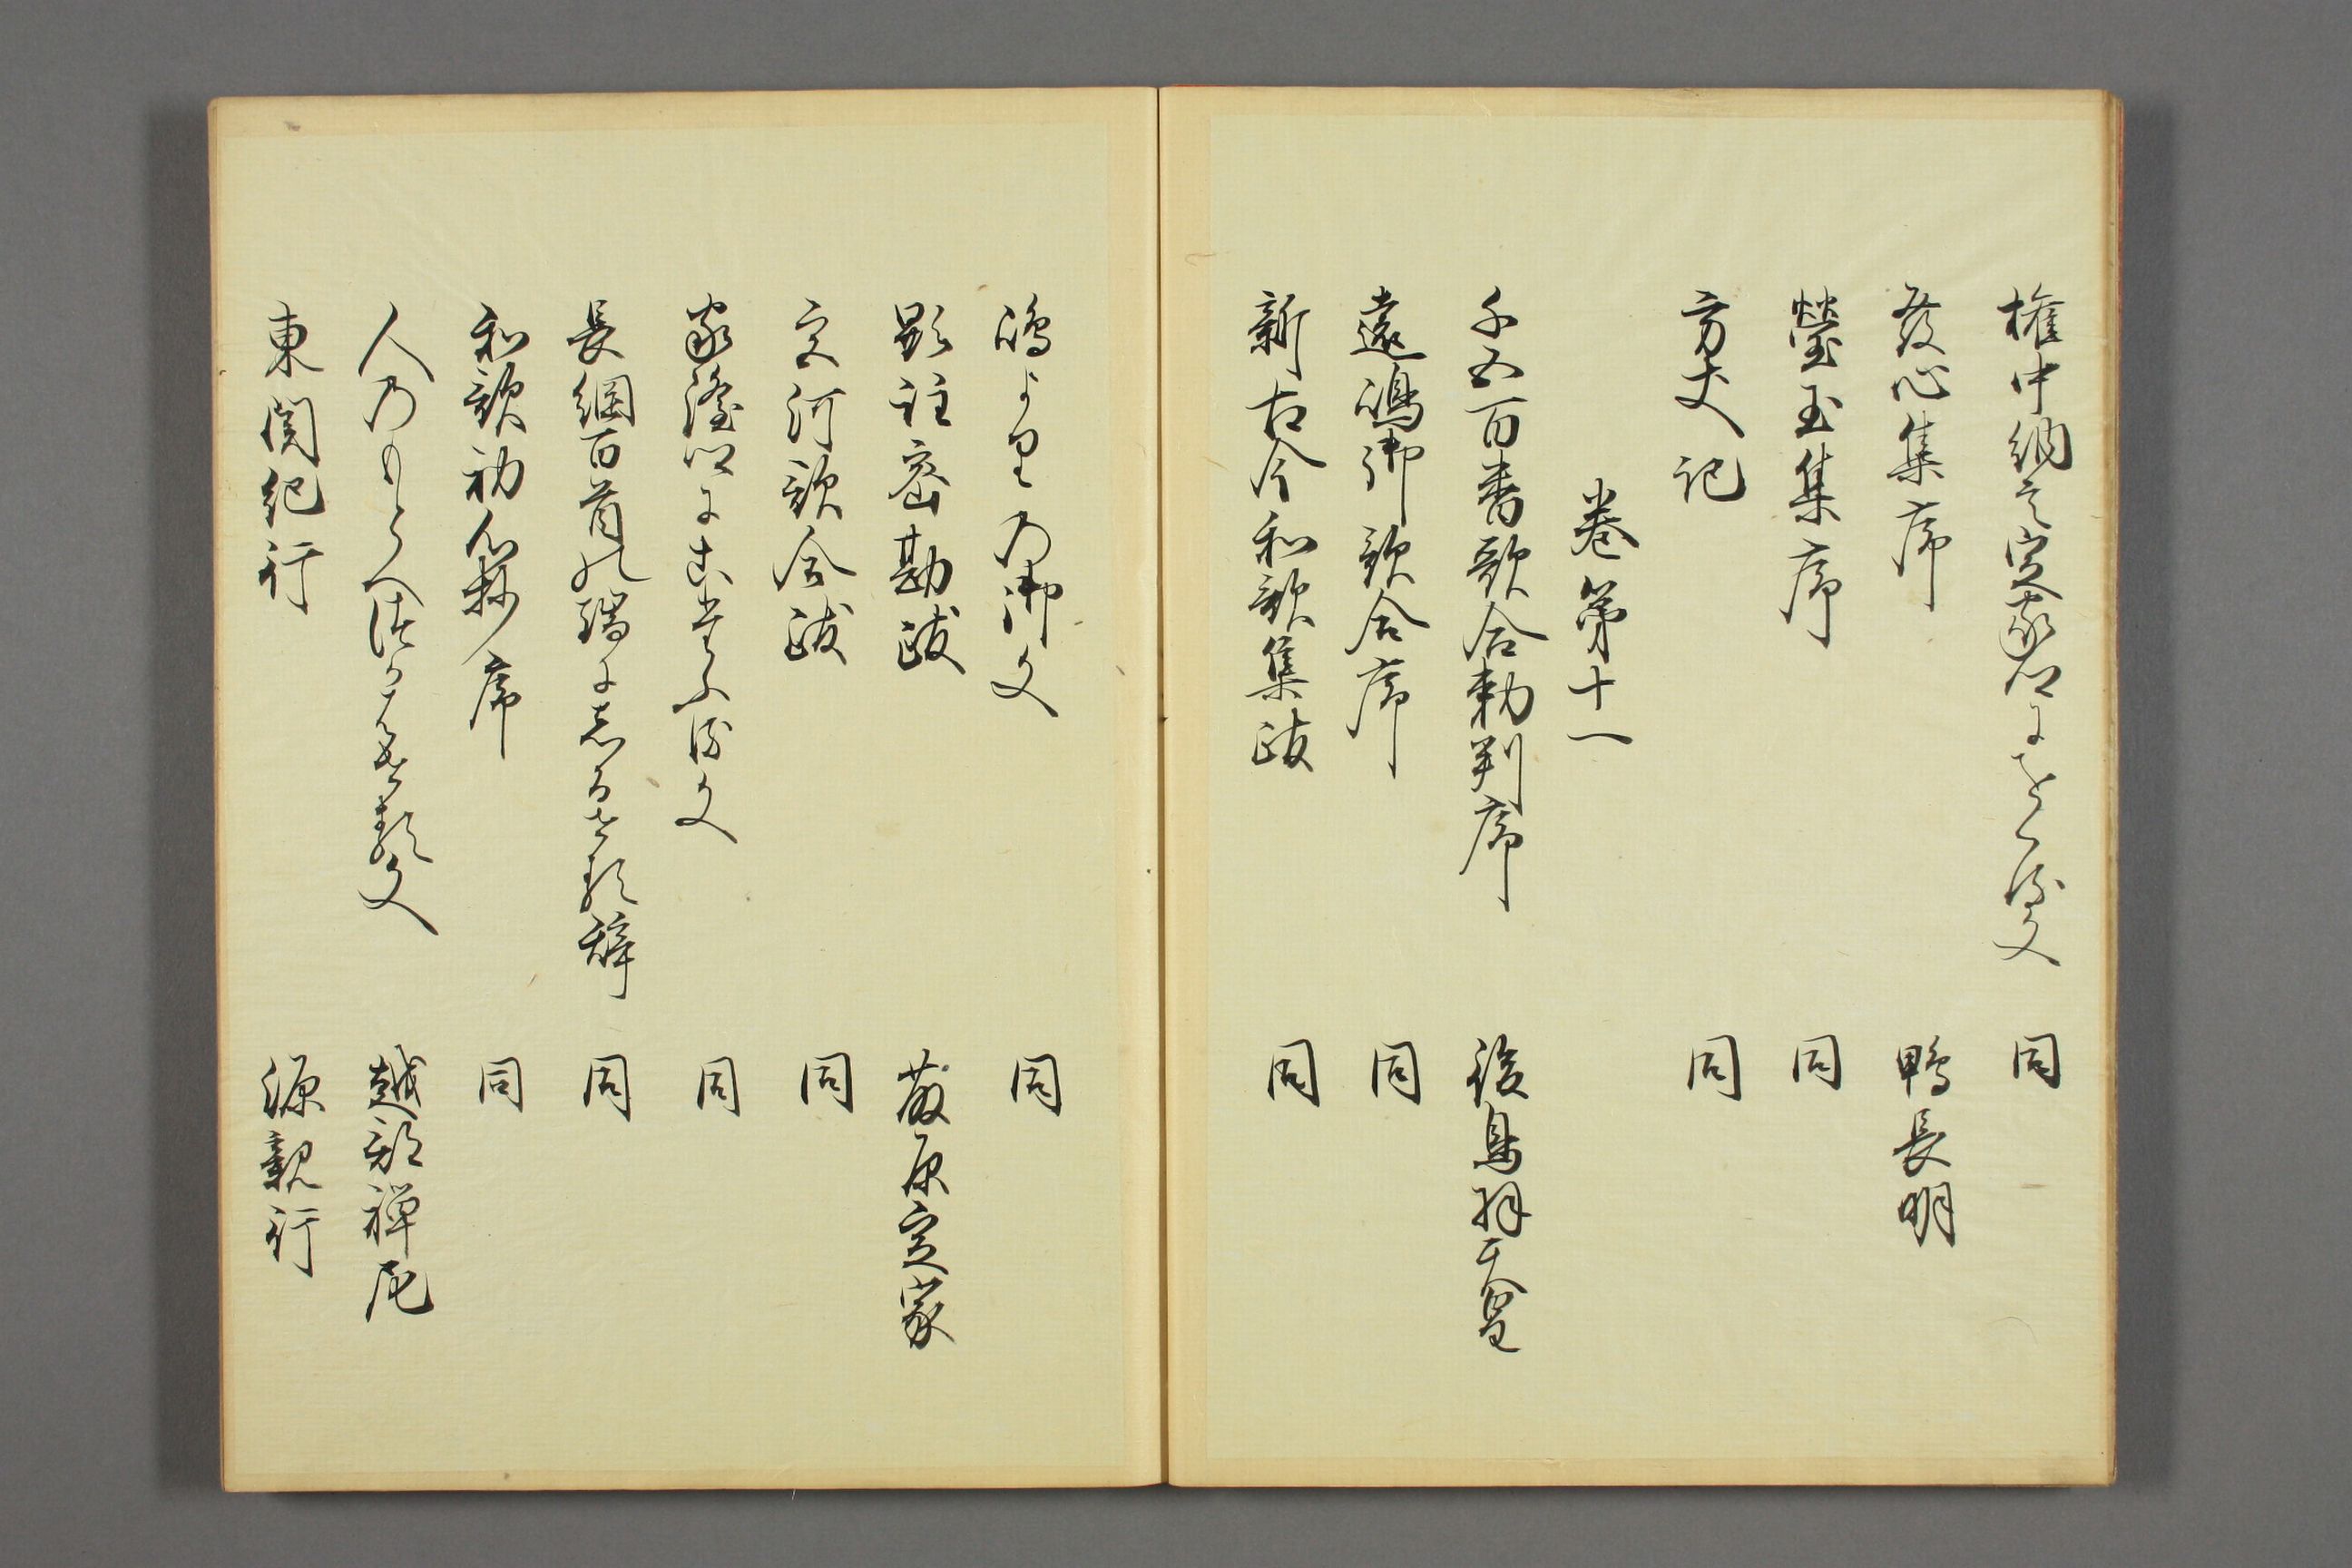 権中納言定家卿におくる文 同
發心集序 鴨長明
瑩玉集序 同
方丈記 同
巻第十一
千五百番歌合勅判序 後鳥羽天皇
遠嶋御歌合序 同
新古今和歌集跋 同
嶋よりの御文 同
顕註密勘跋 藤原定家
宮河歌合跋 同
家隆卿にこたふる文 同
長綱百首の端にしるせる辞 同
和歌初心抄序 同
人のもとへつかはせる文 越部禅尼
東関紀行 源親行